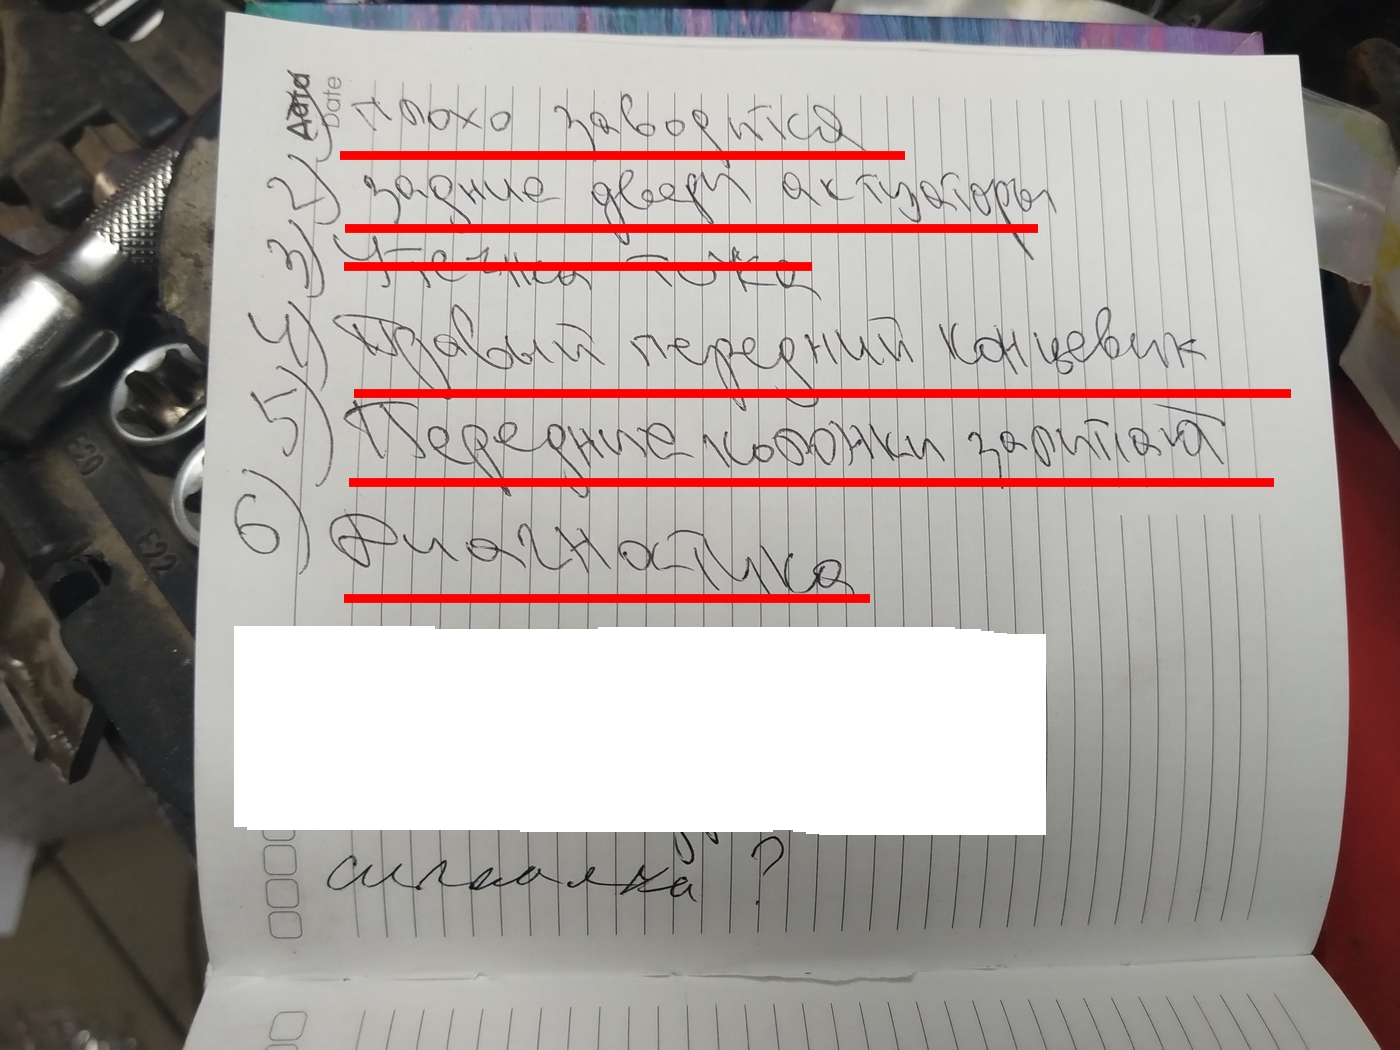 Дата
Date
1) плохо заводится
2) задние двери актуаторы
3) Утечка тока
4) Правый передний концевик
5) Передние колонки залипают
6) Диагностика
сигналка ?
E20
E22